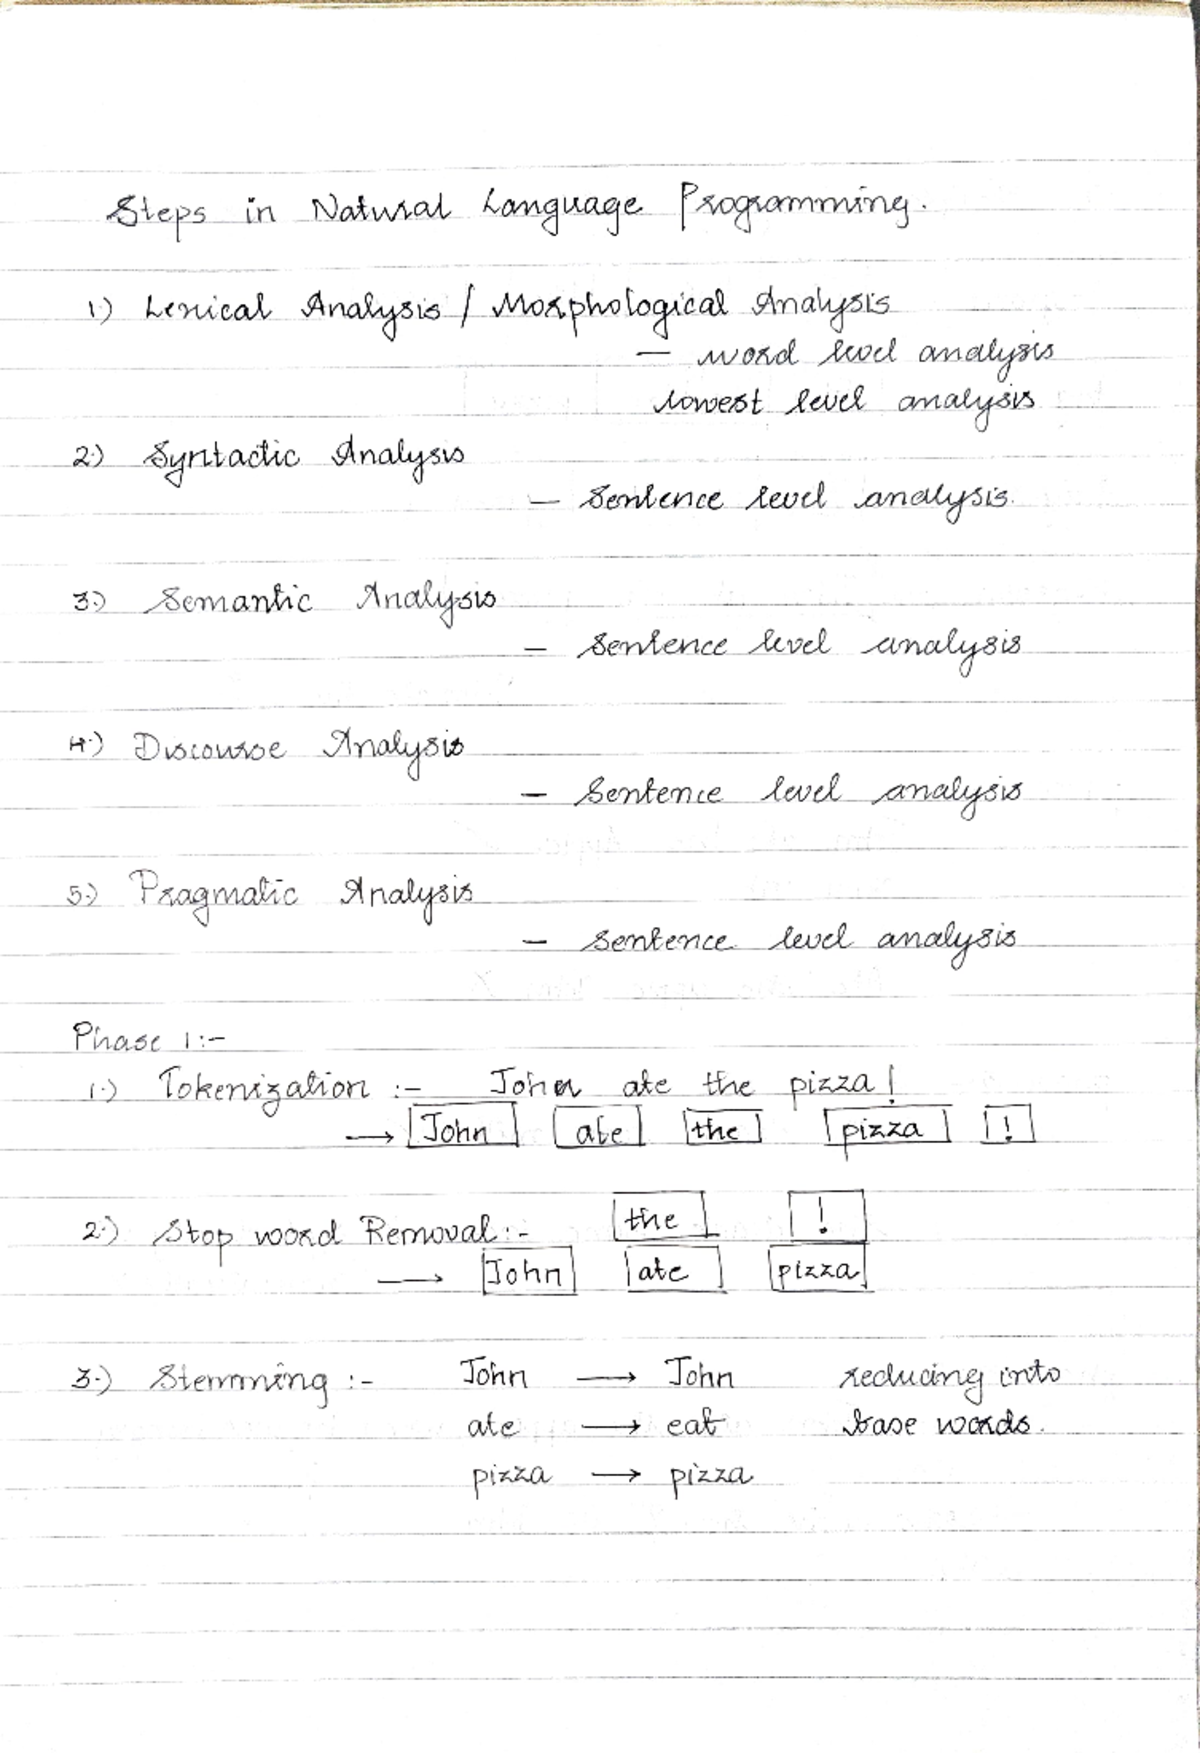 Steps in Natural Language Programming.
1.) Lexical Analysis / Morphological Analysis
— word level analysis
lowest level analysis
2.) Syntactic Analysis
— Sentence level analysis.
3.) Semantic Analysis
— Sentence level analysis
4.) Discourse Analysis
— Sentence level analysis
5.) Pragmatic Analysis
— Sentence level analysis
Phase 1:-
1.) Tokenization :- John ate the pizza!
→ John ate the pizza !
2.) Stop word Removal:- the !
→ John ate pizza
3.) Stemming :- John → John reducing into
ate → eat base words.
pizza → pizza